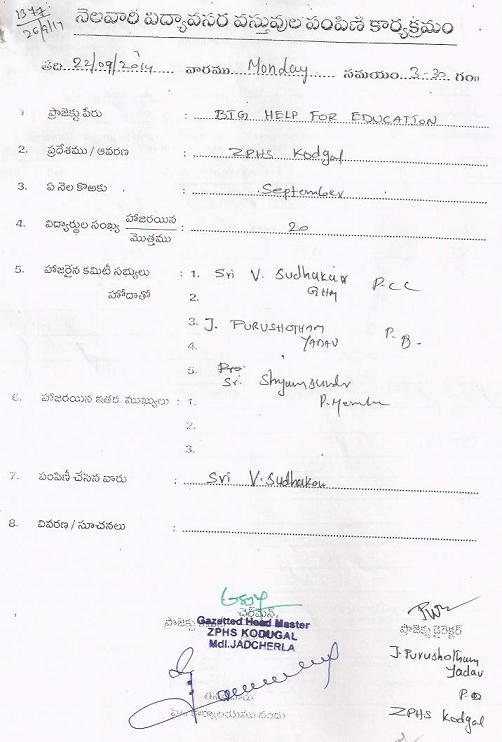 26/9/17
నెలవారి విద్యావసర వస్తువుల పంపిణి కార్యక్రమం
తేది 22/09/2014 వారము Monday సమయం 3-30 గం॥
1. ప్రాజెక్టు పేరు : BIG HELP FOR EDUCATION
2. ప్రదేశము / ఆవరణ : ZPHS Kodgal
3. ఏ నెల కొఱకు : September
4. విద్యార్థుల సంఖ్య హాజరయిన / మొత్తము : 20
5. హాజరైన కమిటీ సభ్యులు : 1. Sri V. Sudhakar P.C.C
హోదాతో 2. GHM
3. J. PURUSHOTHAM P.D.
4. YADAV
5. Sri. Shyamsundr
6. హాజరయిన ఇతర ముఖ్యులు : 1. P. Member
2.
3.
7. పంపిణీ చేసిన వారు : Sri V. Sudhakar
8. వివరణ / సూచనలు :
చైర్‌మేన్,
ప్రాజెక్టు Gazetted Head Master
ZPHS KODUGAL
Mdl.JADCHERLA
ప్రాజెక్టు డైరెక్టర్
J. Purushotham
Yadav
P.D
ZPHS Kodgal
కార్యాలయము నందు